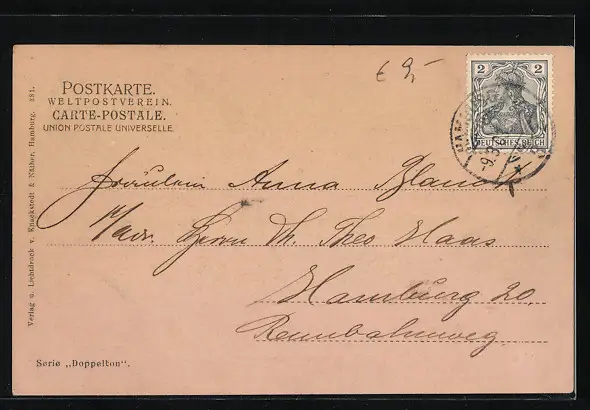 € 9,-
POSTKARTE.
WELTPOSTVEREIN.
CARTE-POSTALE.
UNION POSTALE UNIVERSELLE.
2 2
DEUTSCHES REICH
Fräulein Anna
Herrn Th. Theo Haas
Hamburg 20,
Rennbahnweg
Serie „Doppelton".
Verlag u. Lichtdruck v. Knackstedt & Näther, Hamburg. 281.